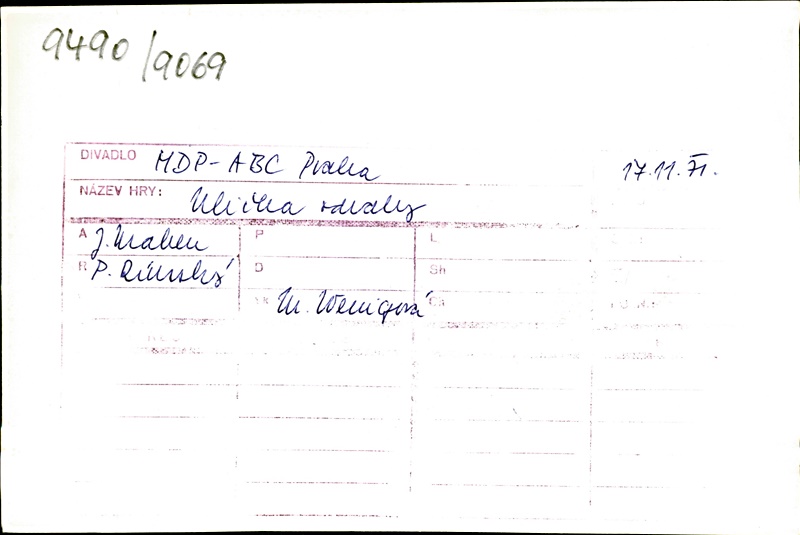 9490/9069
DIVADLO MDP-ABC Praha 17.11.71.
NÁZEV HRY: Ulička odvahy
A J. Mahen P L
R P. Rímský D Sh
M. Wenigová